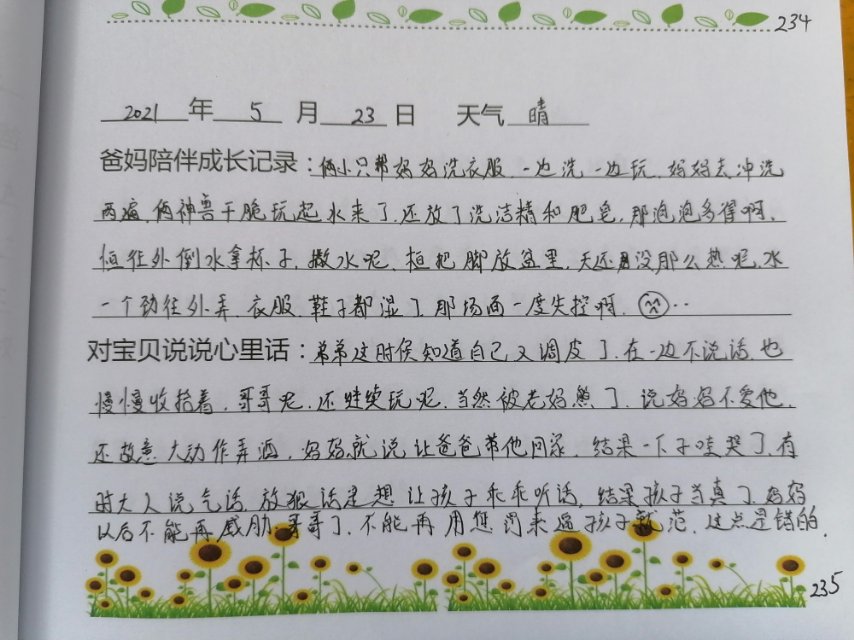 234
2021 年 5 月 23 日 天气 晴
爸妈陪伴成长记录：俩小只帮妈妈洗衣服，一边洗一边玩，妈妈去冲洗
两遍，俩神兽干脆玩起水来了，还放了洗洁精和肥皂，那泡泡多得啊，
恒往外倒水拿杯子，撒水呢，桓把脚放盆里，天还没那么热呢，水
一个劲往外弄，衣服，鞋子都湿了，那场面一度失控啊。
对宝贝说说心里话：弟弟这时候知道自己又调皮了，在一边不说话，也
慢慢收拾着，哥哥呢，还继续玩呢，当然被老妈熊了，说妈妈不爱他，
还故意大动作弄洒，妈妈就说让爸爸带他回家，结果一下子哇哭了，有
时大人说气话，放狠话是想让孩子乖乖听话，结果孩子当真了，妈妈
以后不能再威胁哥哥了，不能再用惩罚来逼孩子就范，这点是错的，
235